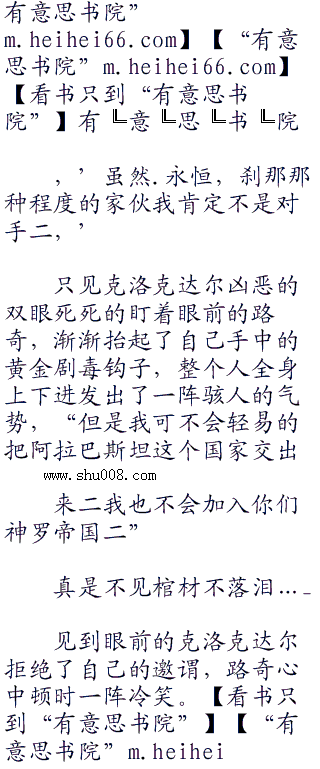 有意思书院”
m.heihei66.com】【“有意
思书院”m.heihei66.com】
【看书只到“有意思书
院”】有╚意╚思╚书╚院
，’虽然.永恒，刹那那
种程度的家伙我肯定不是对
手二，’
只见克洛克达尔凶恶的
双眼死死的盯着眼前的路
奇，渐渐抬起了自己手中的
黄金剧毒钩子，整个人全身
上下迸发出了一阵骇人的气
势，“但是我可不会轻易的
把阿拉巴斯坦这个国家交出
www.shu008.com
来二我也不会加入你们
神罗帝国二”
真是不见棺材不落泪…_
见到眼前的克洛克达尔
拒绝了自己的邀谓，路奇心
中顿时一阵冷笑。【看书只
到“有意思书院”】【“有
意思书院”m.heihei